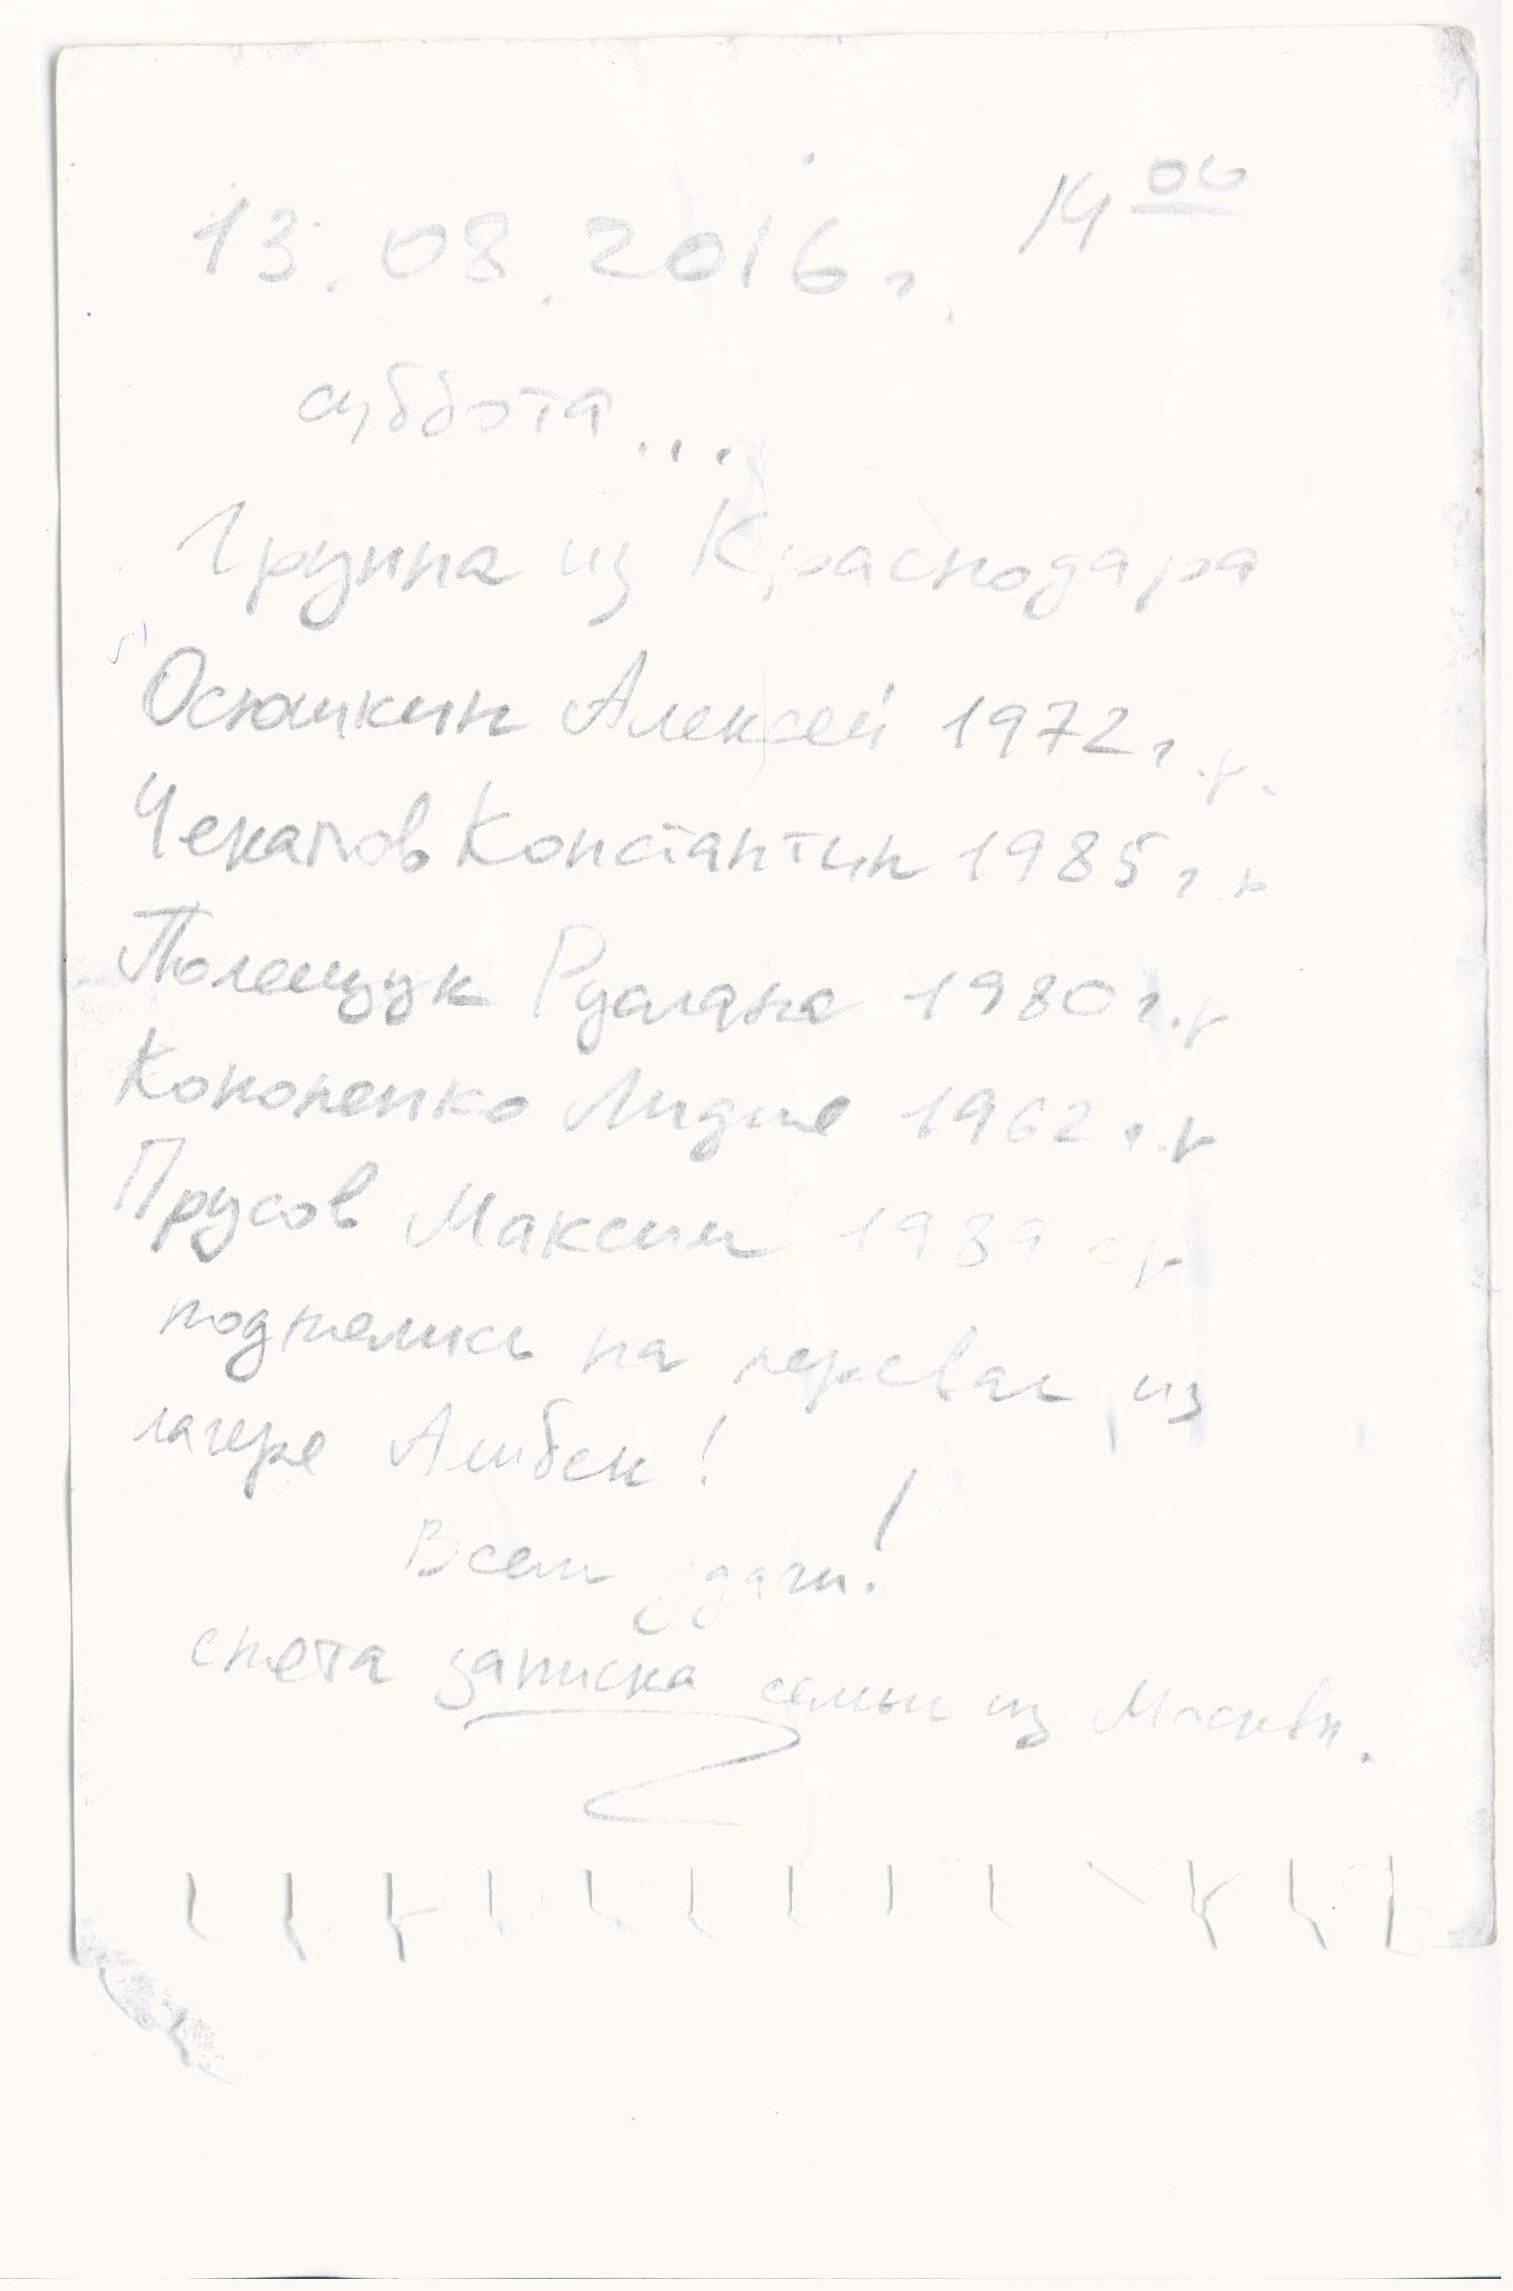 13.08.2016г. 14⁰⁰
суббота...
Группа из Краснодара
Осюшкин Алексей 1972г.р.
Чекатов Константин 1985г.р
Полещук Руслана 1980г.р
Кононенко Лидия 1962г.р
Прусов Максим 1989г.р
поднялись на перевал из
лагеря Алибек!
Всем удачи!
снята записка семьи из Москвы.